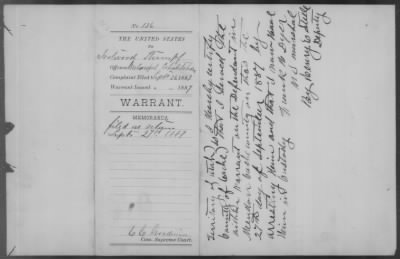 No. 136
THE UNITED STATES
vs
Stumpf
Offence Unlawful Cohabitation
Complaint Filed Sept 26 1887
Warrant Issued " " 1887
WARRANT.
MEMORANDA.
filed as return
Sept. 27th 1887
C C Goodwin
Com. Supreme Court.
Territory of Utah
County of Cache } ss I hereby certify
that I served the
within warrant on the Defendant in
Mendon Cache county on the
27th day of September 1887 by
arresting him and that I now have
him in custody
Frank H Dyer
U.S. Marshal
By Steele
Deputy